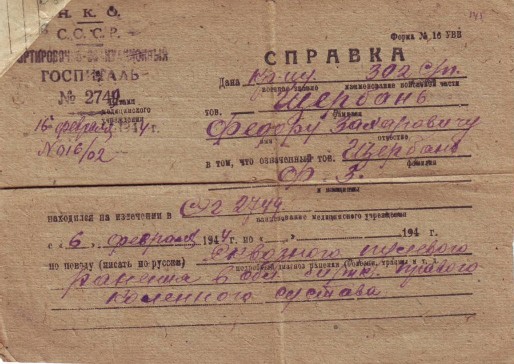 145
Н. К. О.
С. С. С. Р.
ГОСПИТАЛЬ
№ 2749
Штамп
медицинского
учреждения
16 февраля 1944 г.
№ 016/02
Форма № 16 УВВ
СПРАВКА
Дана кр-цу 302 с/п.
воинское звание наименование воинской части
тов. Щербань
фамилия
Федору Захаровичу
имя отчество
в том, что означенный тов. Щербань
фамилия
Ф. З.
и инициалы
находился на излечении в ЭГ 2749
наименование медицинского учреждения
с « 6 » февраля 1944 г. по « » 194 г.
по поводу (писать по-русски) сквозного пулевого
ранения в обл. правого
коленного сустава